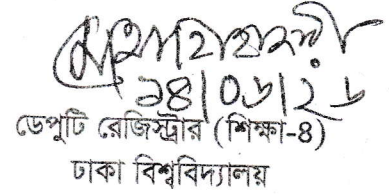 ১৪/০৬/২৬
ডেপুটি রেজিস্ট্রার (শিক্ষা-৪)
ঢাকা বিশ্ববিদ্যালয়